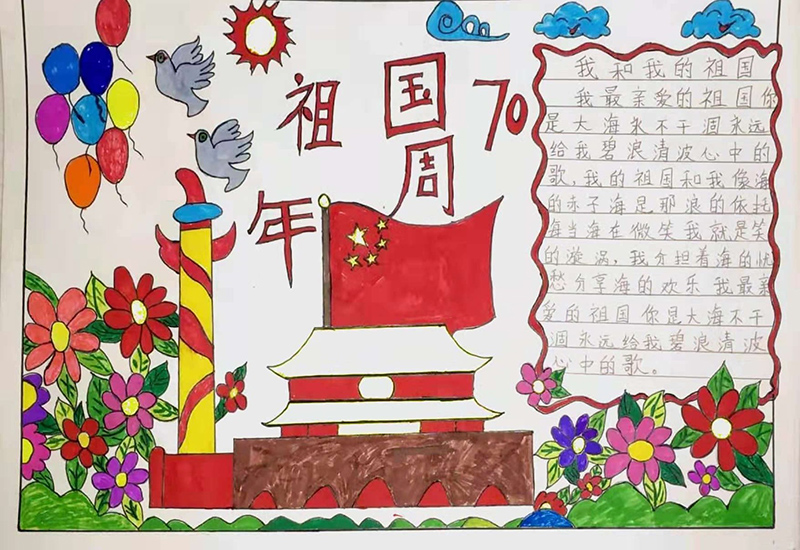 祖国70
周
年
我和我的祖国
我最亲爱的祖国你
是大海永不干涸永远
给我碧浪清波心中的
歌,我的祖国和我像海
的赤子海是那浪的依托
每当海在微笑我就是笑
的漩涡,我分担着海的忧
愁分享海的欢乐我最亲
爱的祖国你是大海不干
涸永远给我碧浪清波
心中的歌。